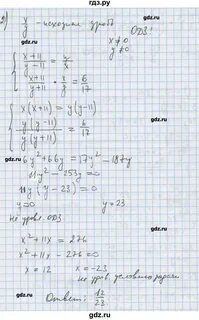 гдз.ру
2) x/y - исходная дробь
ОДЗ:
x≠0
y≠0
{ (x+11)/(y-11) = y/x
(x+11)/(y+11) · x/y = 6/17
{ x(x+11) = y(y-11)
y(y-11)/y(y+11) = 6/17
6y²+66y = 17y² - 187y
11y² - 253y = 0
11y(y-23) = 0
y=0 y=23
не удовл. ОДЗ
x²+11x = 276
x²+11x-276=0
x=12 x=-23
не удовл. условию задачи
Ответ: 12/23
gdz.ru